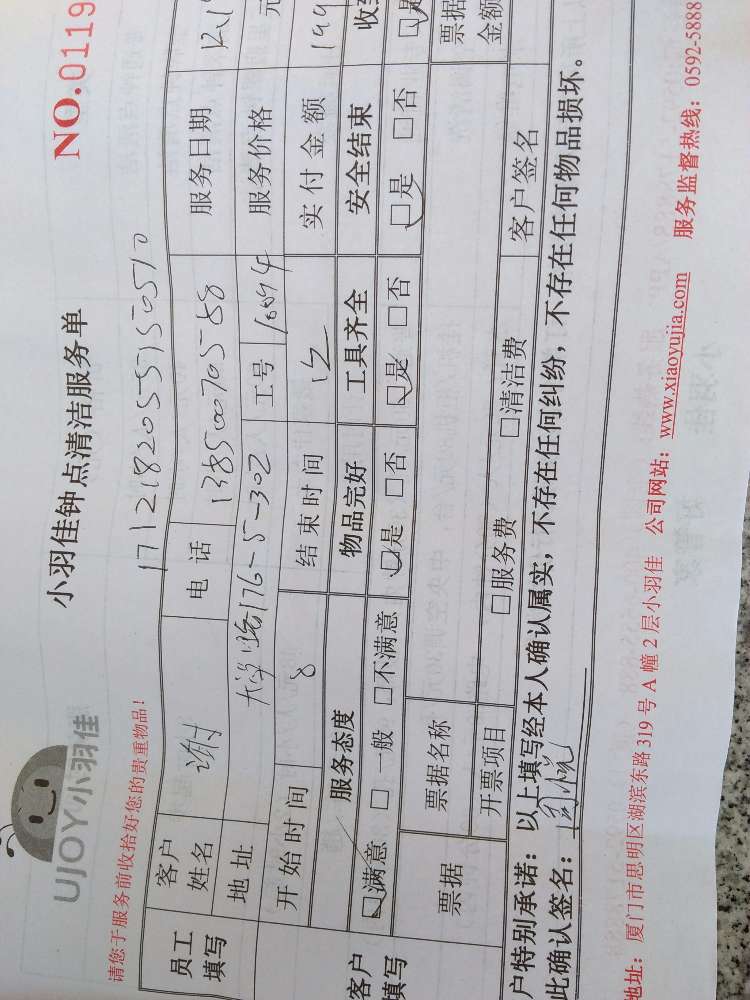 UJOY小羽佳
小羽佳钟点清洁服务单
NO.0119
请您于服务前收拾好您的贵重物品!
17121820551550510
员工填写
客户姓名 谢 电话 13850070588 服务日期 12.1
地址 大学路176-5-302 工号 10094 服务价格 元
开始时间 8 结束时间 12 实付金额 199
服务态度 物品完好 工具齐全 安全结束 收到
客户填写
☑满意 □一般 □不满意 ☑是 □否 ☑是 □否 ☑是 □否
票据 票据名称 票据金额
开票项目 □服务费 □清洁费 客户签名
户特别承诺:以上填写经本人确认属实,不存在任何纠纷,不存在任何物品损坏。
此确认签名:
地址:厦门市思明区湖滨东路319号A幢2层小羽佳 公司网站:www.xiaoyujia.com 服务监督热线:0592-5888